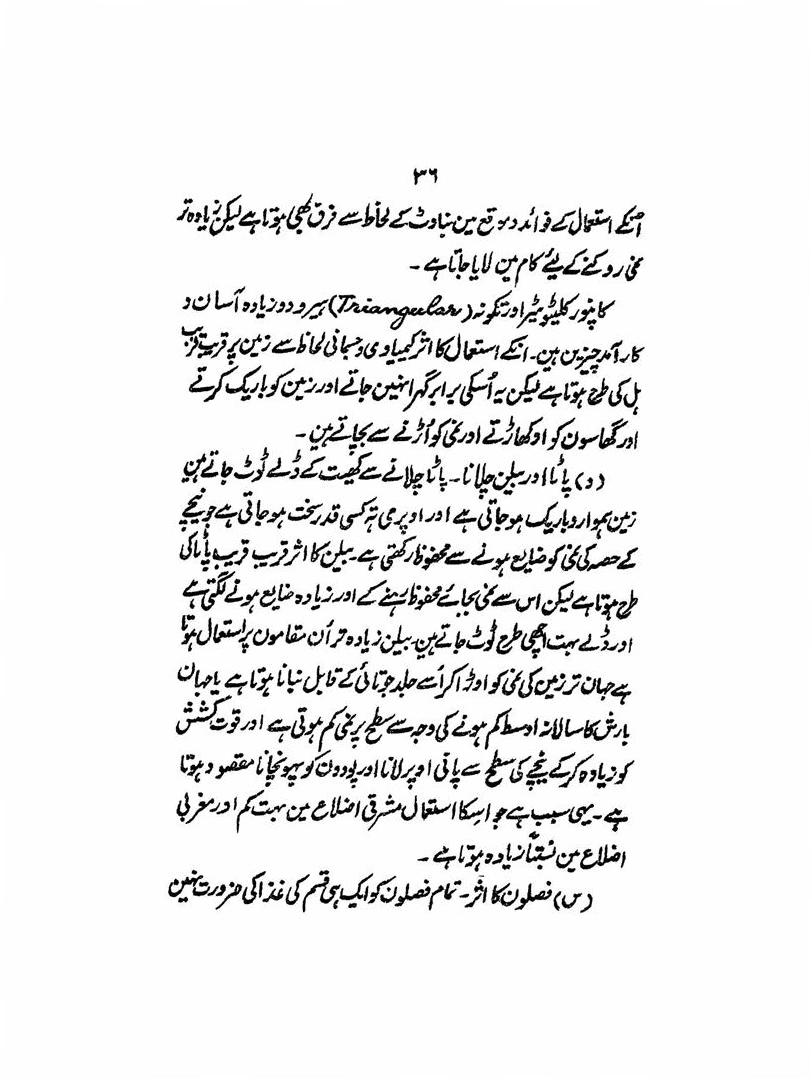 ۳۶
اُنکے استعمال کے فوائد و موقع مین بناوٹ کے لحاظ سے فرق بھی ہوتا ہے لیکن زیادہ تر
نمی روکنے کے لیئے کام مین لایا جاتا ہے ۔
کانپور کلٹیویٹر اور تکونہ (Triangular) ہیرو دو زیادہ آسان و
کار آمد چیزین ہین ۔ انکے استعمال کا اثر کیمیاوی و جسمانی لحاظ سے زمین پر قریب قریب
ہل کی طرح ہوتا ہے لیکن یہ اُسکی برابر گہرا نہین جاتے اور زمین کو باریک کرتے
اور گھاسون کو اوکھاڑتے اور نمی کو اُڑنے سے بچاتے ہین ۔
(و) پاٹا اور بیلن چلانا ۔ پاٹا چلانے سے کھیت کے ڈلے ٹوٹ جاتے ہین
زمین ہموار و باریک ہو جاتی ہے اور اوپری تہ کسی قدر سخت ہو جاتی ہے جو نیچے
کے حصہ کی نمی کو ضایع ہونے سے محفوظ رکھتی ہے ۔ بیلن کا اثر قریب قریب پاٹا کی
طرح ہوتا ہے لیکن اس سے نمی بجائے محفوظ رہنے کے اور زیادہ ضایع ہونے لگتی ہے
اور ڈلے بہت اچھی طرح ٹوٹ جاتے ہین ۔ بیلن زیادہ تر اُن مقامون پر استعمال ہوتا
ہے جہان تر زمین کی نمی کو اوڑا کر اُسے جلد جوتائی کے قابل بنانا ہوتا ہے یا جہان
بارش کا سالانہ اوسط کم ہونے کی وجہ سے سطح پر نمی کم ہوتی ہے اور قوت کشش
کو زیادہ کر کے نیچے کی سطح سے پانی اوپر لانا اور پودون کو پہونچانا مقصود ہوتا
ہے ۔ یہی سبب ہے جو اسکا استعمال مشرقی اضلاع مین بہت کم اور مغربی
اضلاع مین نسبتاً زیادہ ہوتا ہے ۔
(س) فصلون کا اثر ۔ تمام فصلون کو ایک ہی قسم کی غذا کی ضرورت نہین